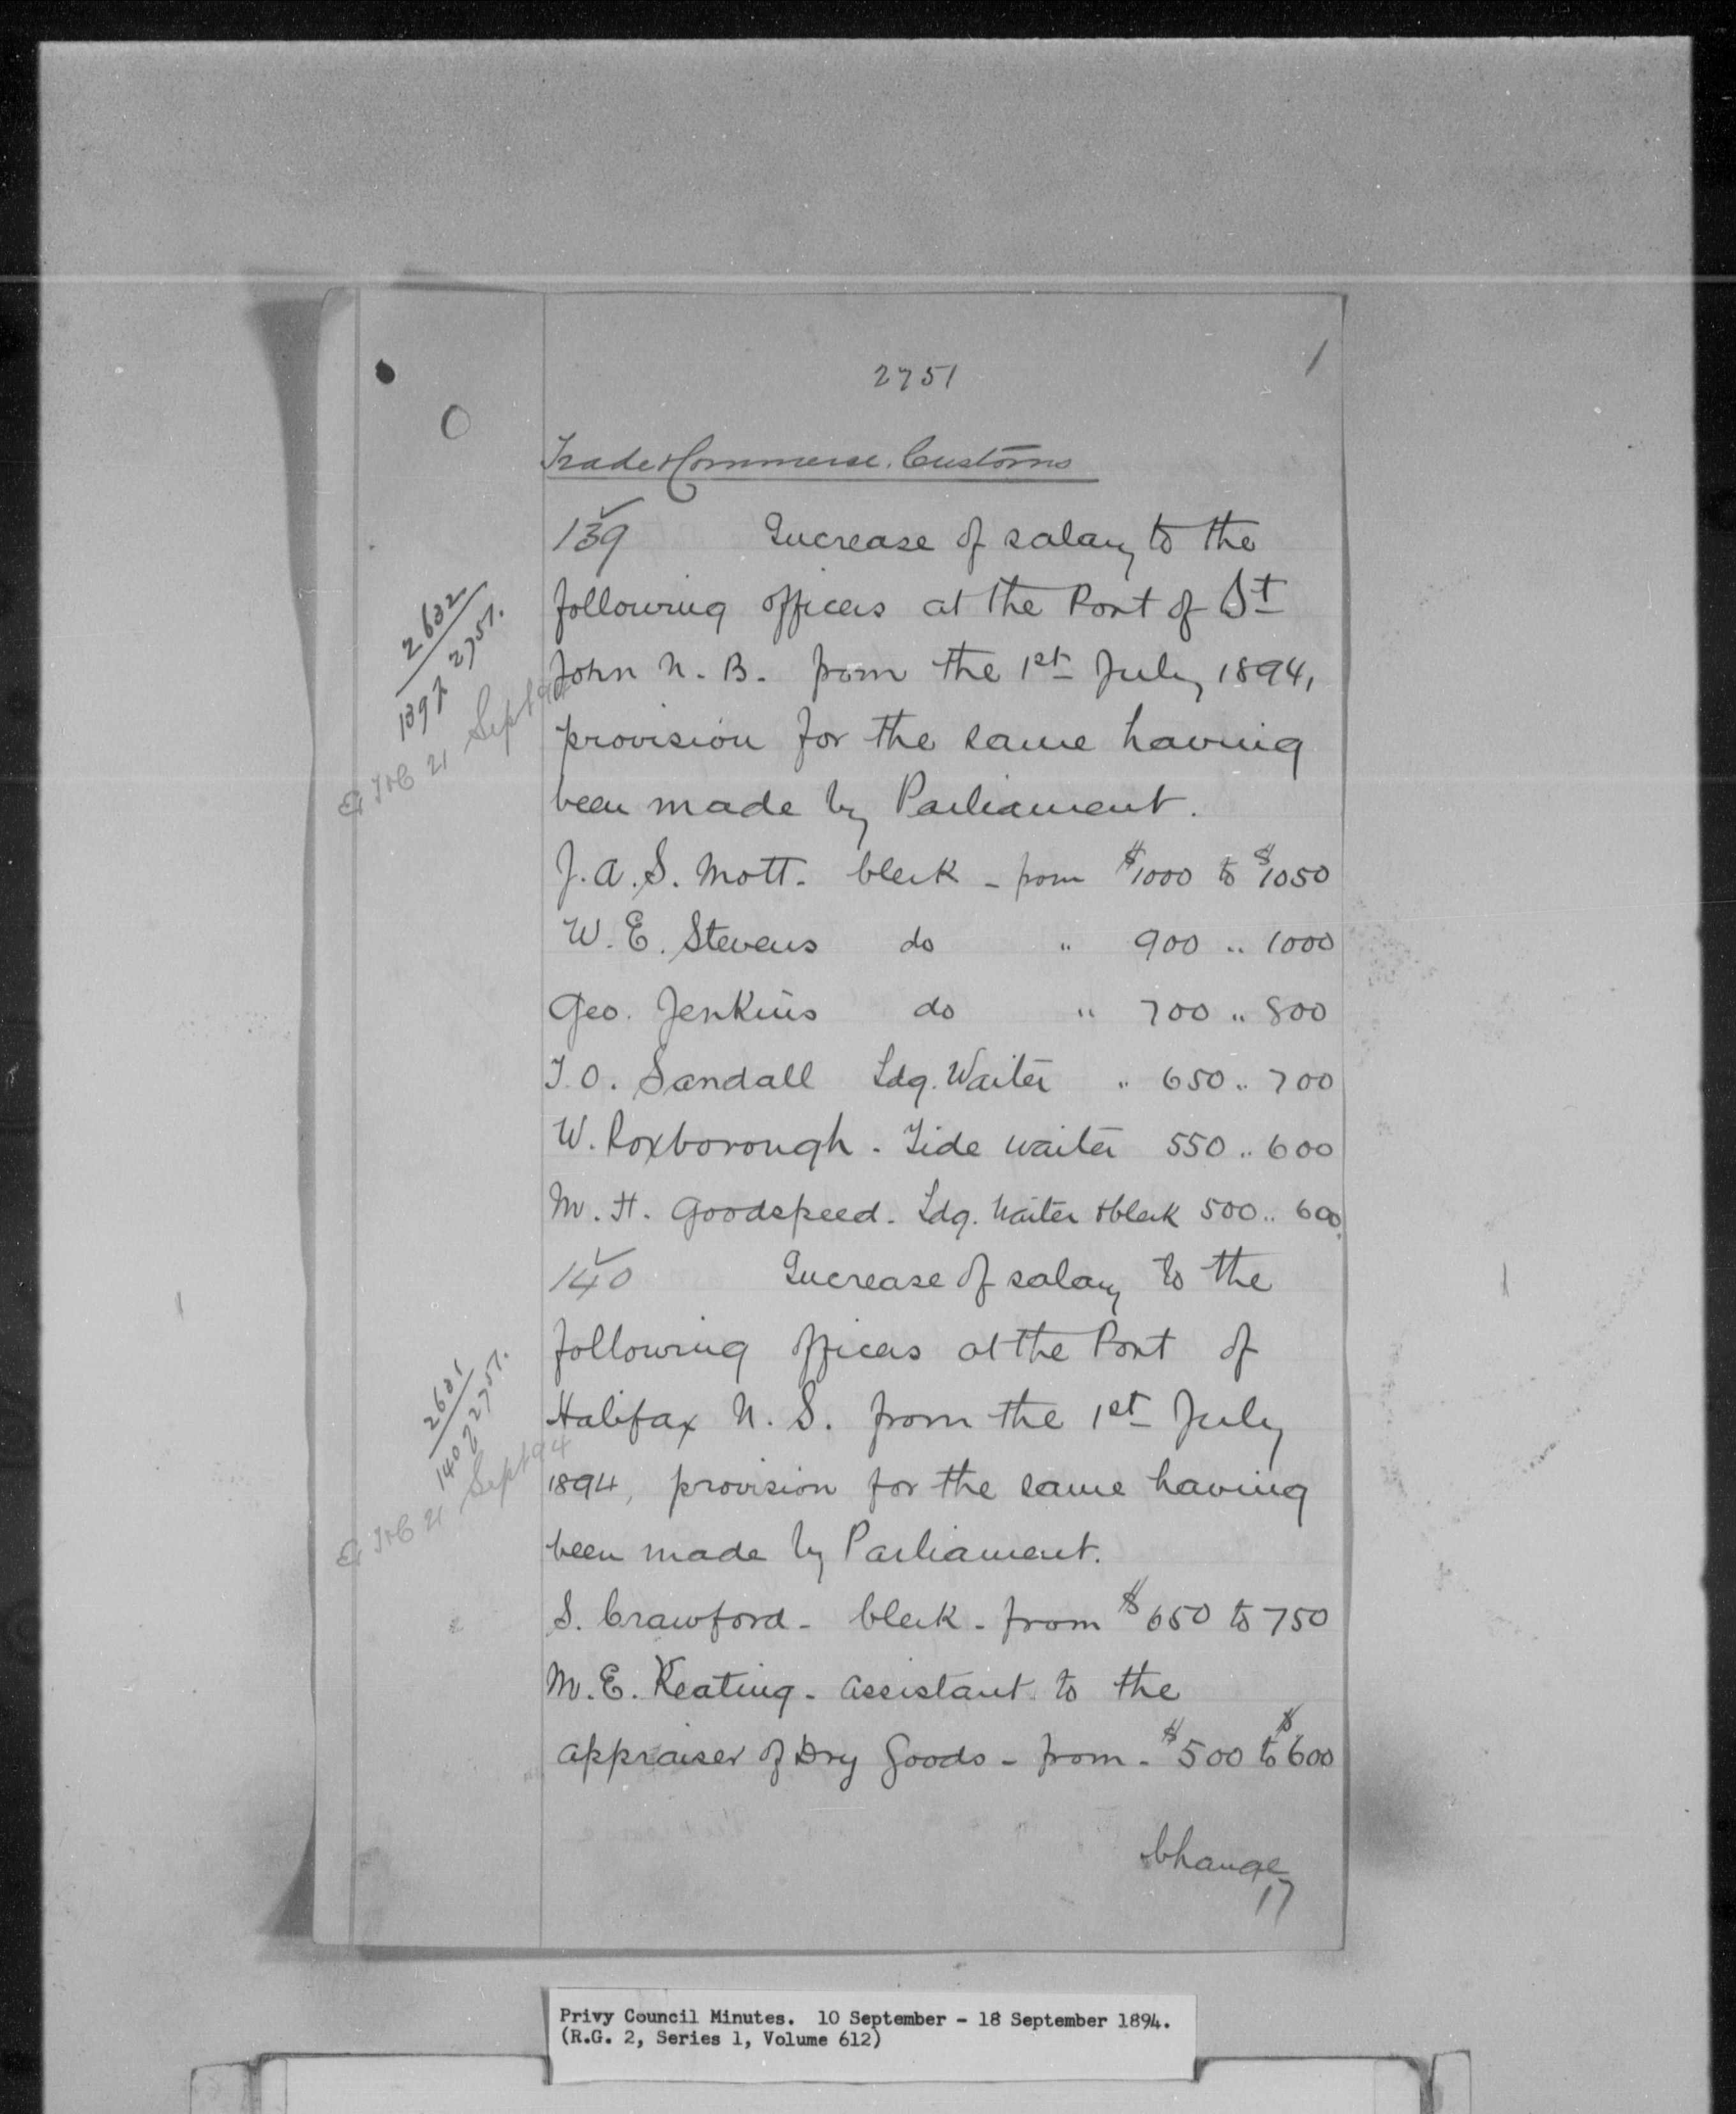 2751
1
Trade & Commerce. Customs
139 Increase of salary to the
following officers at the Port of St
John N. B. from the 1st July, 1894,
provision for the same having
been made by Parliament.
J. A. S. Mott. Clerk - from $1000 to $1050
W. E. Stevens do " 900 .. 1000
Geo. Jenkins do " 700 " 800
T. O. Sandall Ldg. Waiter " 650 .. 700
W. Roxborough - Tide waiter 550 .. 600
M. H. Goodspeed - Ldg. Waiter & Clerk 500 .. 600
2632
139 of 2751.
E, T & C 21 Sept 94
140 Increase of salary to the
following officers at the Port of
Halifax N. S. from the 1st July
1894, provision for the same having
been made by Parliament.
S. Crawford - Clerk - from $650 to 750
M. E. Keating - Assistant to the
appraiser of Dry Goods - from - $500 to $600
2631
140 of 2751.
E, T & C 21 Sept 94
Change
17
Privy Council Minutes. 10 September - 18 September 1894.
(R.G. 2, Series 1, Volume 612)